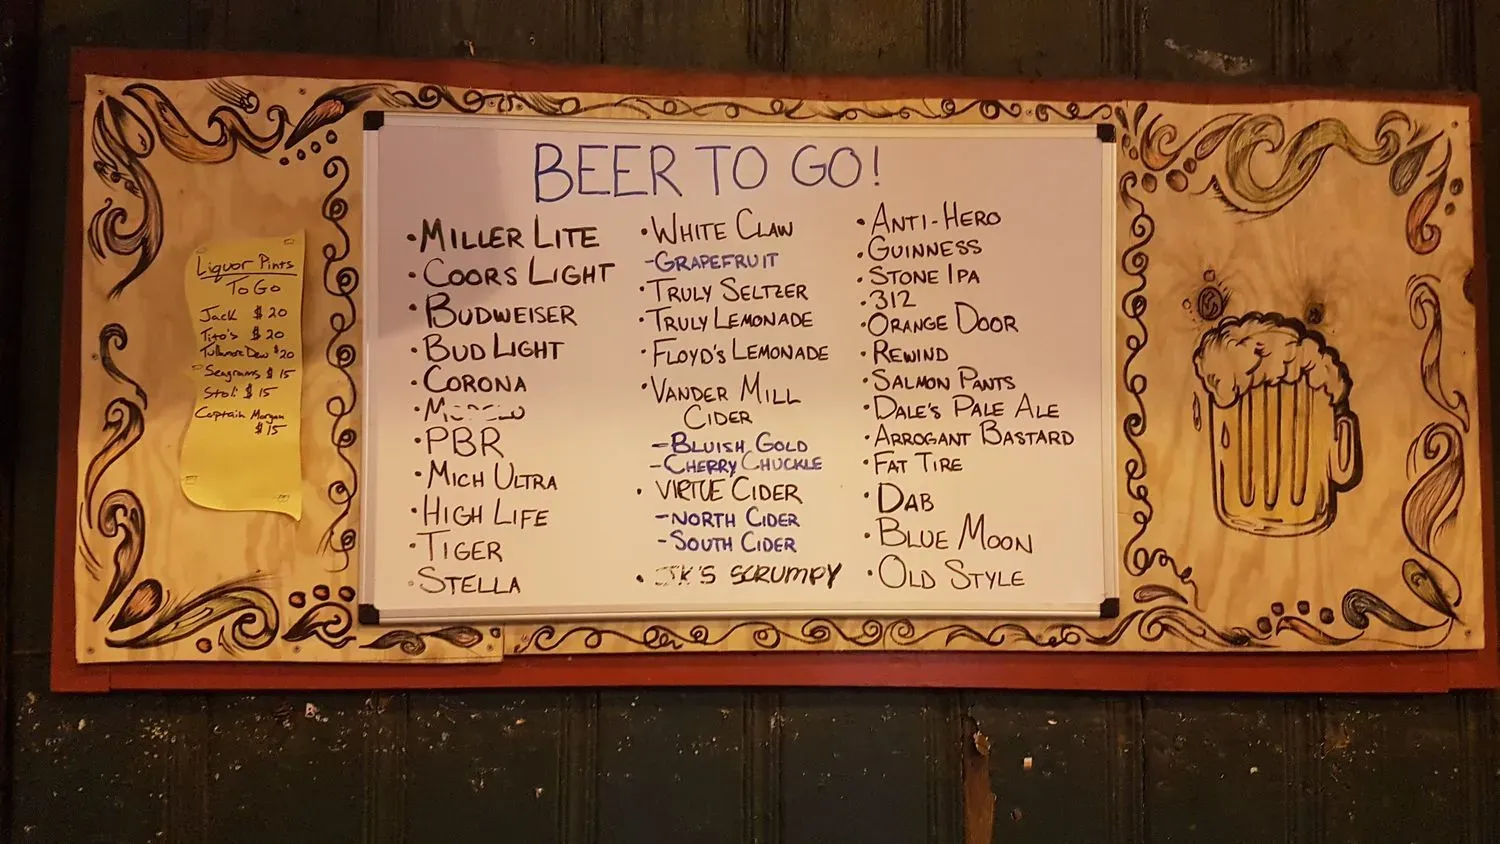 Liquor Pints
To Go
Jack $20
Tito's $20
Tullamore Dew $20
Seagrams $15
Stoli $15
Captain Morgan
$15
BEER TO GO!
• MILLER LITE
• COORS LIGHT
• BUDWEISER
• BUD LIGHT
• CORONA
• MODELO
• PBR
• MICH ULTRA
• HIGH LIFE
• TIGER
• STELLA
• WHITE CLAW
- GRAPEFRUIT
• TRULY SELTZER
• TRULY LEMONADE
• FLOYD'S LEMONADE
• VANDER MILL
CIDER
- BLUISH GOLD
- CHERRY CHUCKLE
• VIRTUE CIDER
- NORTH CIDER
- SOUTH CIDER
• JK'S SCRUMPY
• ANTI-HERO
• GUINNESS
• STONE IPA
• 312
• ORANGE DOOR
• REWIND
• SALMON PANTS
• DALE'S PALE ALE
• ARROGANT BASTARD
• FAT TIRE
• DAB
• BLUE MOON
• OLD STYLE